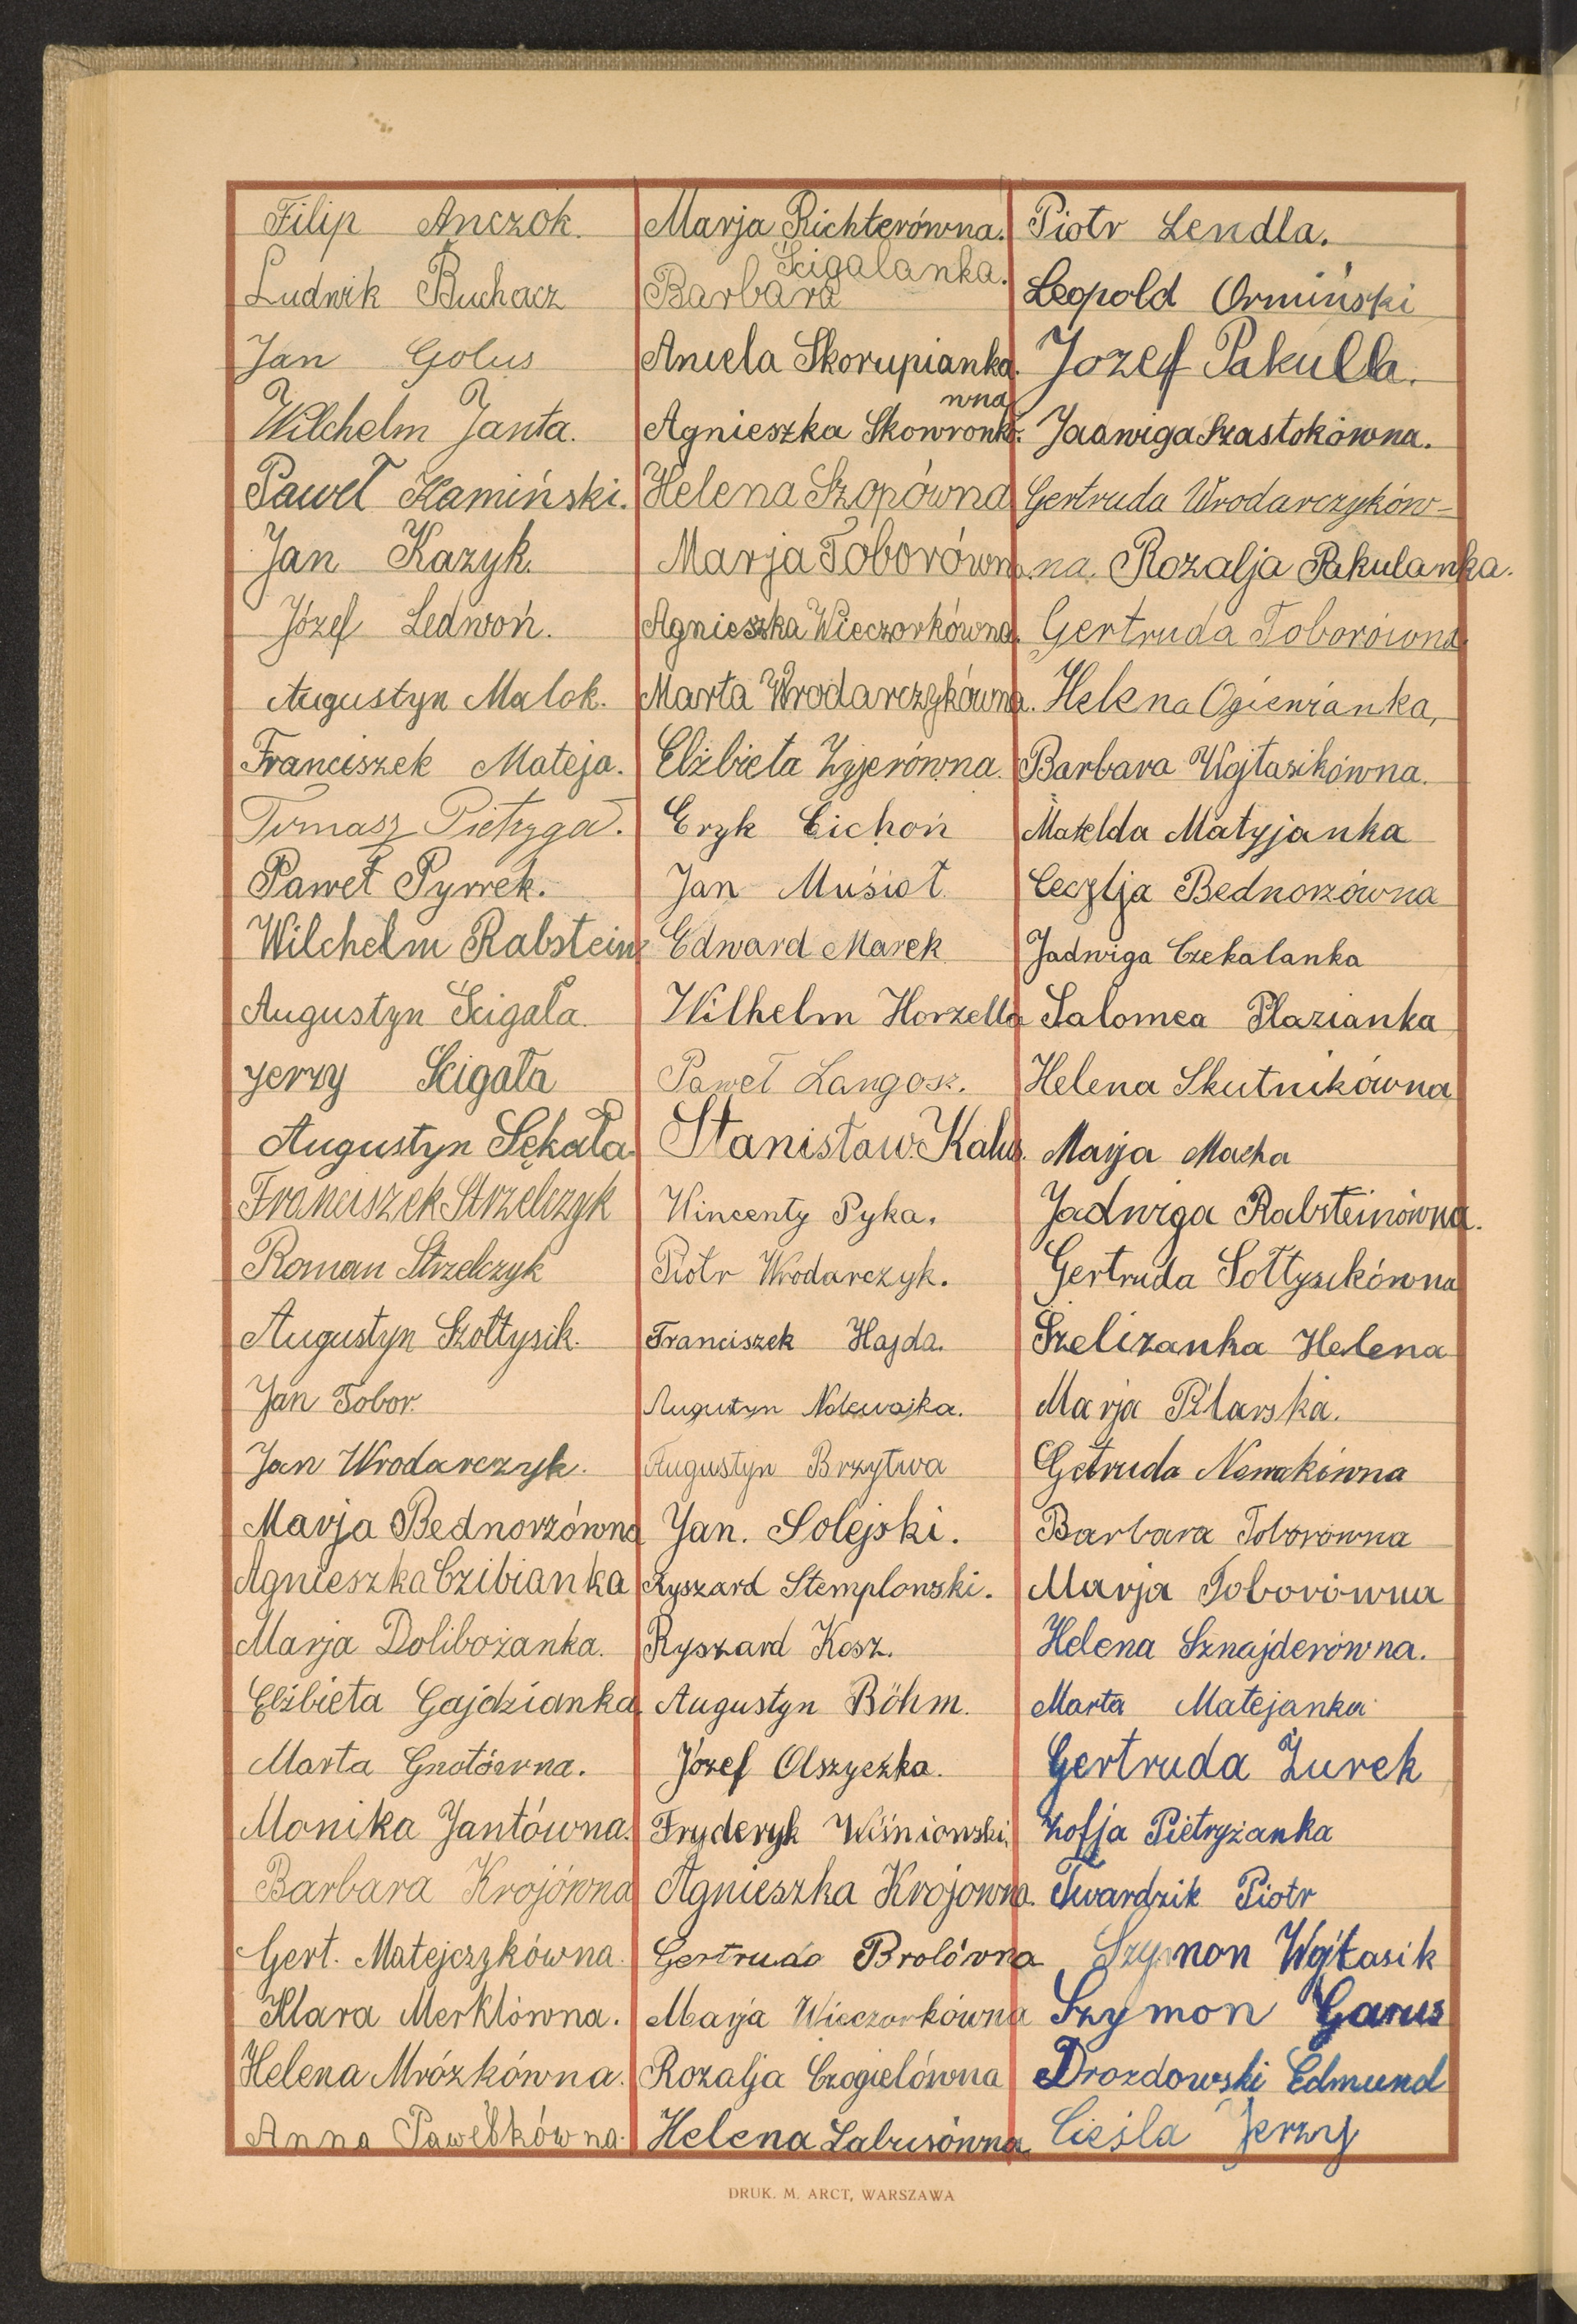 Filip Anczok.
Ludwik Buchacz
Jan Golus
Wilchelm Janta.
Paweł Kamiński.
Jan Kazyk.
Józef Ledwoń.
Augustyn Malok.
Franciszek Mateja.
Tomasz Pietryga.
Paweł Pyrrek.
Wilchelm Rabstein
Augustyn Ścigała.
Jerzy Ścigała
Augustyn Sękała
Franciszek Strzelczyk
Roman Strzelczyk
Augustyn Szołtysik.
Jan Tobor.
Jan Wrodarczyk.
Marja Bednorzówna
Agnieszka Czibianka
Marja Dolibożanka.
Elżbieta Gajdzianka
Marta Gnotówna.
Monika Jantówna.
Barbara Krojówna
Gert. Matejczykówna.
Klara Merklówna.
Helena Mrózkówna.
Anna Pawełkówna.
Marja Richterówna.
Ścigalanka.
Barbara
Aniela Skorupianka.
wna
Agnieszka Skowronkó.
Helena Szopówna
Marja Toborówna
Agnieszka Wieczorkówna.
Marta Wrodarczykówna.
Elżbieta Zyjerówna.
Eryk Cichoń
Jan Musioł.
Edward Marek
Wilhelm Horzella
Paweł Langosz.
Stanisław Kalus.
Wincenty Pyka.
Piotr Wrodarczyk.
Franciszek Hajda.
Augustyn Nolewajka.
Augustyn Brzytwa
Jan. Solejski.
Ryszard Stemplowski.
Ryszard Kosz.
Augustyn Böhm.
Józef Olszyczka.
Fryderyk Wiśniowski.
Agnieszka Krojówna.
Gertruda Brolówna
Marja Wieczorkówna
Rozalja Czogielówna
Helena Labusówna
Piotr Lendla.
Leopold Ormiński
Jozef Pakulla.
Jadwiga Szastokówna.
Gertruda Wrodarczyków-
na. Rozalja Pakulanka.
Gertruda Toborówna
Helena Ogiewianka,
Barbara Wojtasikówna.
Matelda Matyjanka
Cecylja Bednorzówna
Jadwiga Czekalanka
Salomea Plazianka
Helena Skutnikówna
Marja Macha
Jadwiga Rabsteinówna.
Gertruda Sołtysikówna
Szelizanka Helena
Marja Pilarska.
Getruda Nowakówna
Barbara Toborówna
Marja Toborówna
Helena Sznajderówna.
Marta Matejanka
Gertruda Żurek
Zofja Pietryżanka
Twardzik Piotr
Szymon Wojtasik
Szymon Garus
Drozdowski Edmund
Cieśla Jerzy
DRUK. M. ARCT, WARSZAWA